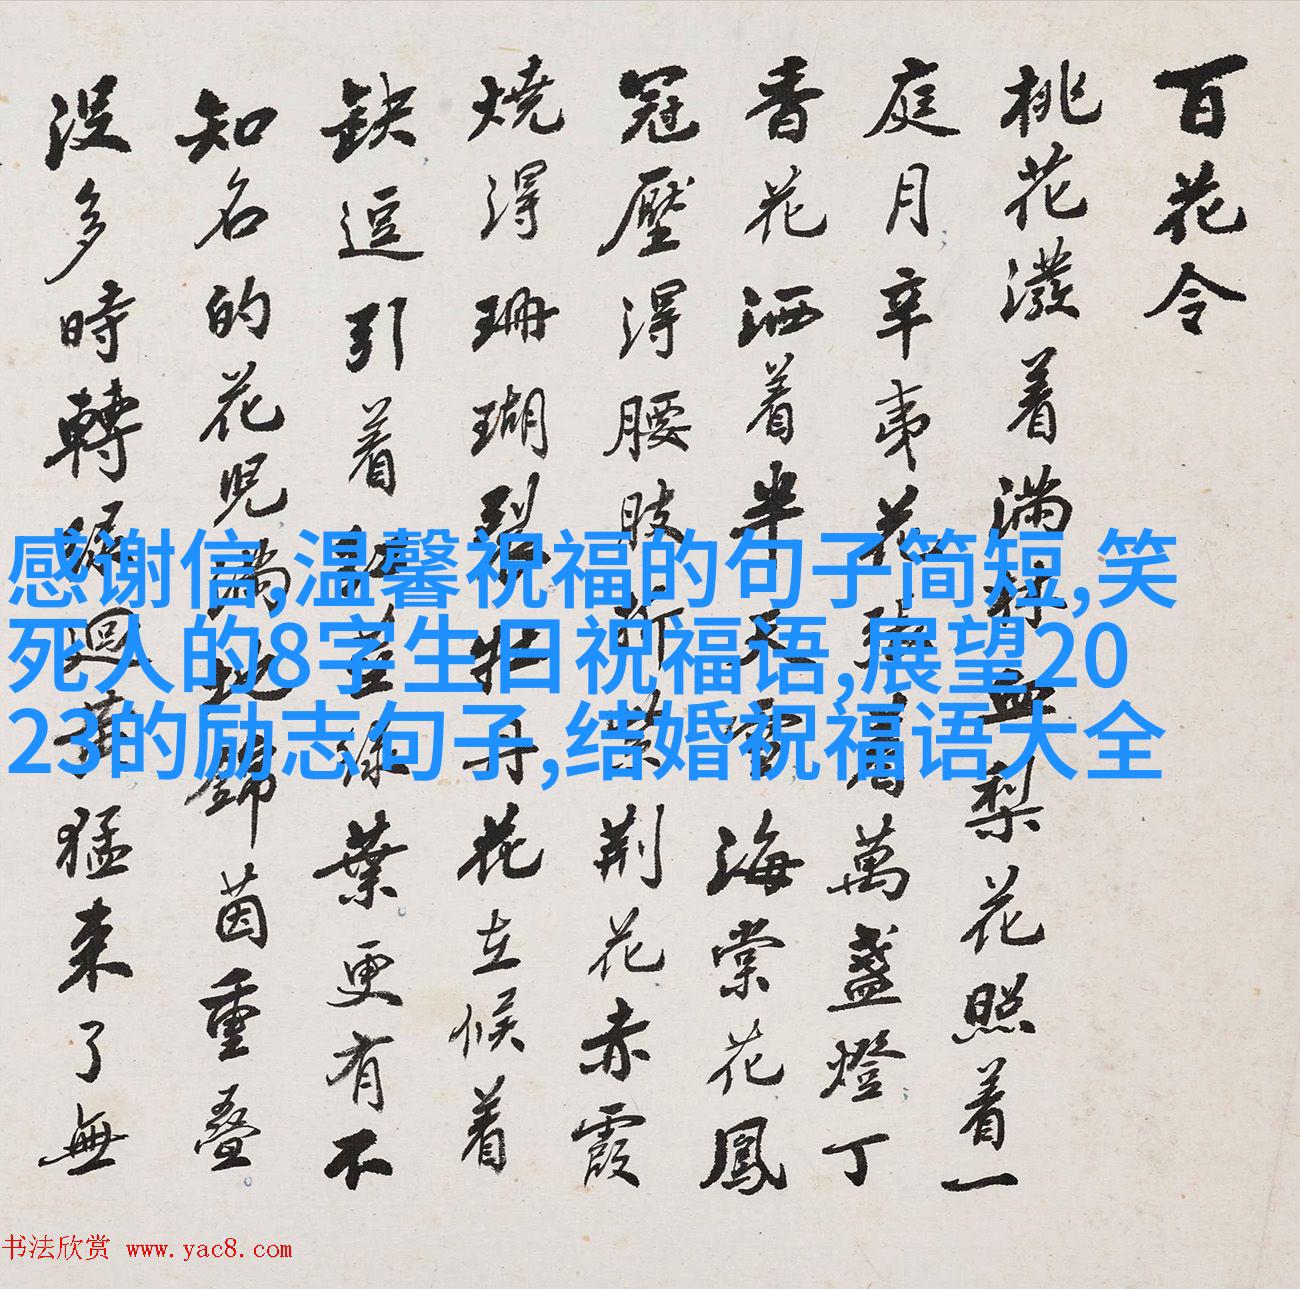 百花令
桃花潑着满林血梨花照着一
庭月辛夷花萬盞燈丁
香花洒着半天雪海棠花鳳
冠壓得腰肢折紫荆花赤霞
燒得珊瑚裂牡丹花立候着
缺逗引着绿葉更有不
知名的花児满地錦茵重疊
没多時轉過黄猛来了無
感谢信,温馨祝福的句子简短,笑
死人的8字生日祝福语,展望20
23的励志句子,结婚祝福语大全
书法欣赏 www.yac8.com